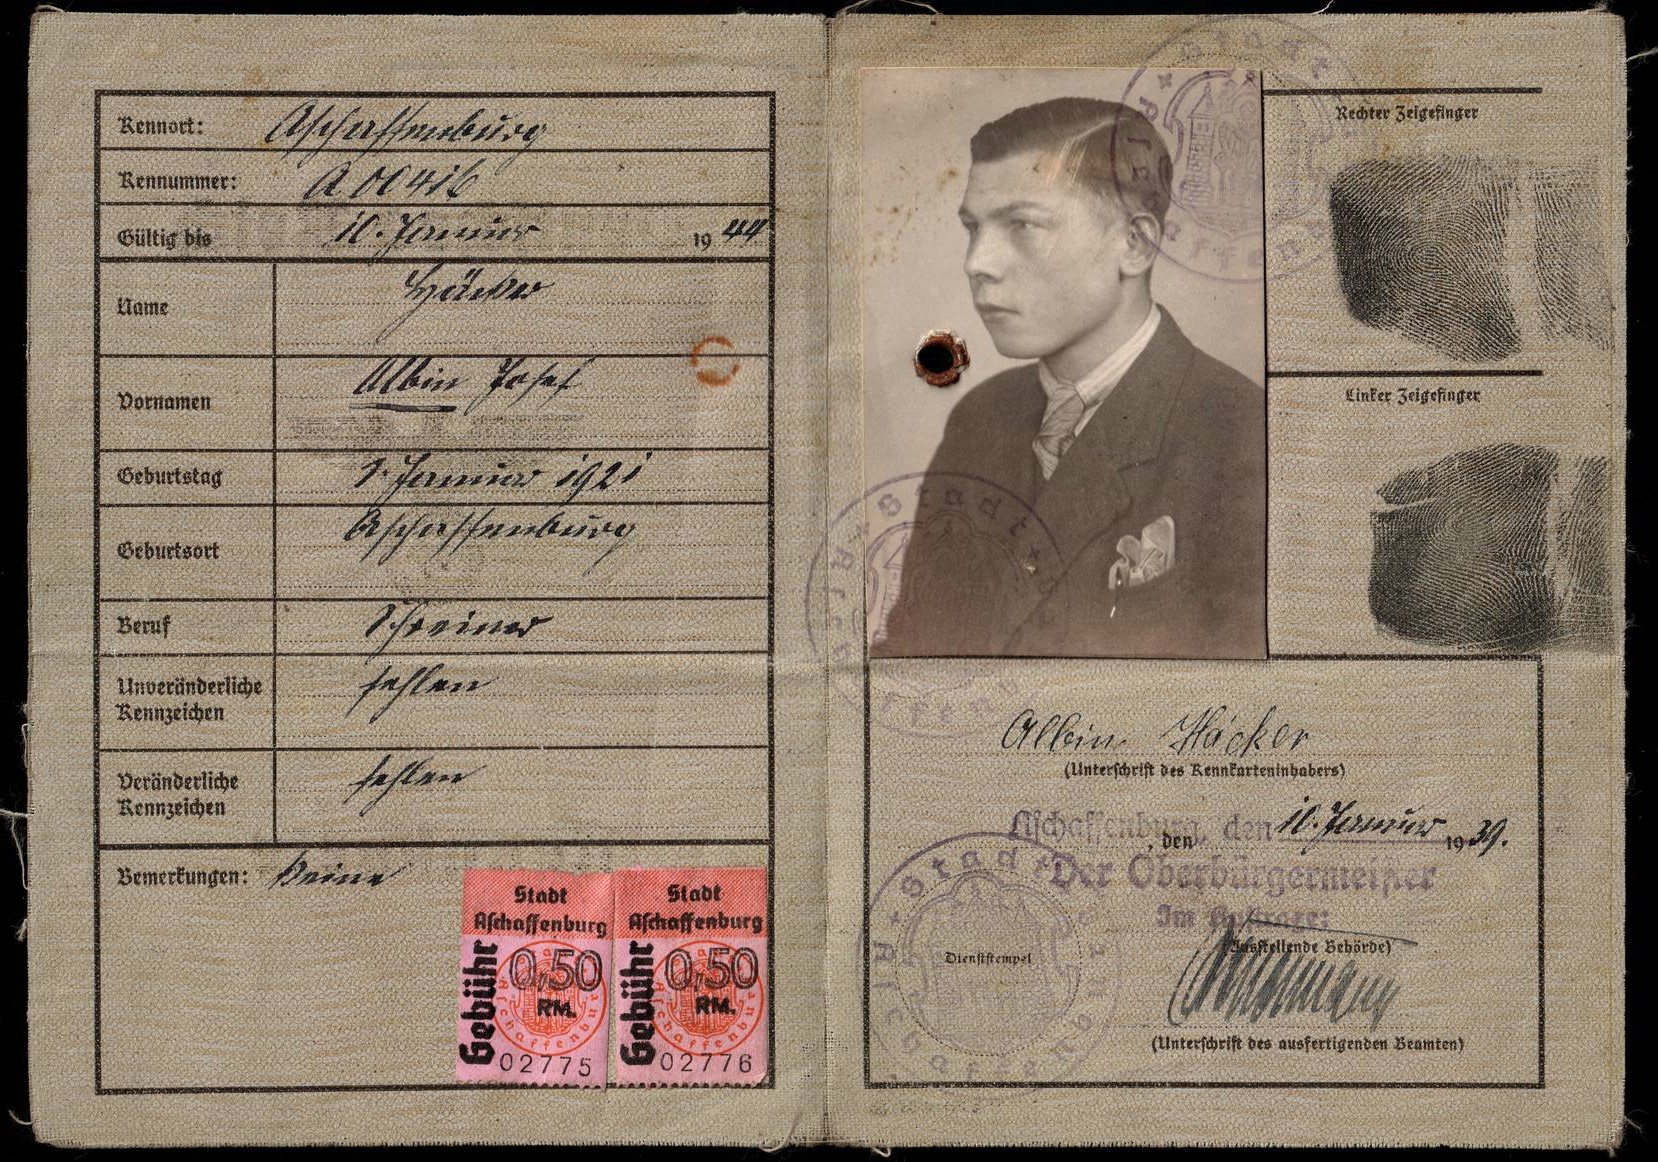 Kennort: Aschaffenburg
Kennummer: A 00416
Gültig bis 10. Januar 1944
Name Häcker
Vornamen Albin Josef
Geburtstag 1. Januar 1921
Geburtsort Aschaffenburg
Beruf Schreiner
Unveränderliche fehlen
Kennzeichen
Veränderliche fehlen
Kennzeichen
Bemerkungen: Keine
Stadt
Aschaffenburg
Gebühr
0,50
RM.
Aschaffenburg
02775
Stadt
Aschaffenburg
Gebühr
0,50
RM.
Aschaffenburg
02776
Stadt Aschaffenburg
Rechter Zeigefinger
Linker Zeigefinger
Stadt Aschaffenburg
Albin Häcker
(Unterschrift des Kennkarteninhabers)
Aschaffenburg, den 10. Januar 1939.
, den
Der Oberbürgermeister
Im Auftrage:
(Ausstellende Behörde)
Stadt Aschaffenburg
Dienststempel
(Unterschrift des ausfertigenden Beamten)